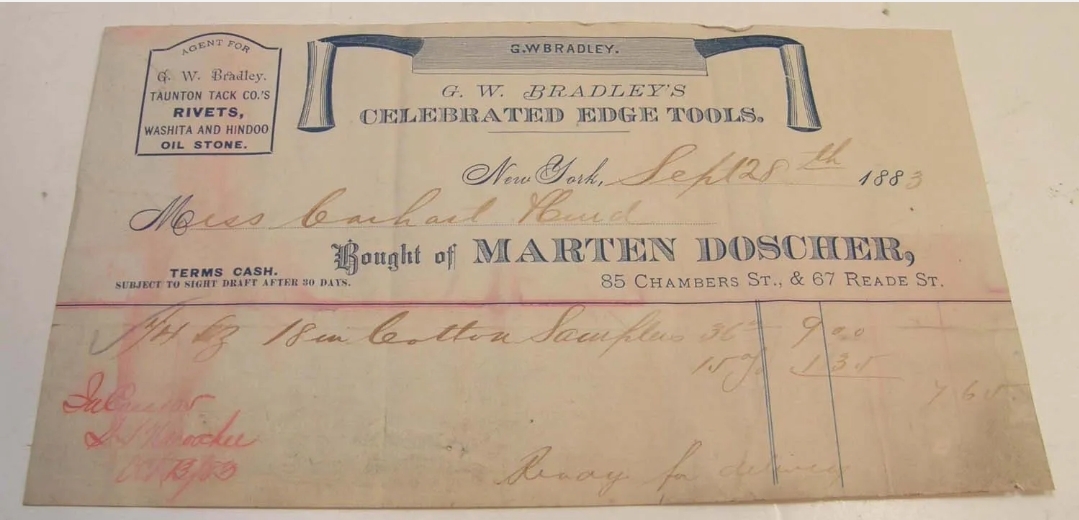 AGENT FOR
G. W. Bradley.
TAUNTON TACK CO.'S
RIVETS,
WASHITA AND HINDOO
OIL STONE.
G.W BRADLEY.
G. W. BRADLEY'S
CELEBRATED EDGE TOOLS.
New York, Sept 28th 1883
Mess Carhart
Bought of MARTEN DOSCHER,
TERMS CASH.
SUBJECT TO SIGHT DRAFT AFTER 30 DAYS.
85 CHAMBERS ST., & 67 READE ST.
1/4 dz 18 in Cotton Samplers 36 9 00
15 % 1 35
7 65
Ready for delivery